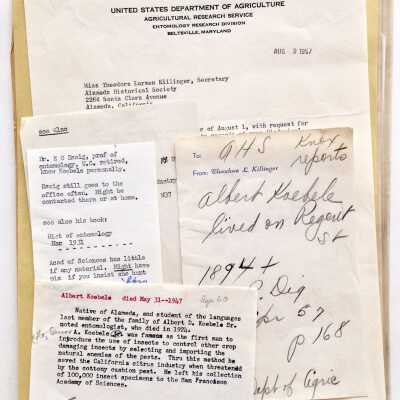 UNITED STATES DEPARTMENT OF AGRICULTURE
AGRICULTURAL RESEARCH SERVICE
ENTOMOLOGY RESEARCH DIVISION
BELTSVILLE, MARYLAND
AUG 9 1957
Miss Theodora Lorman Killinger, Secretary
Alameda Historical Society
2264 Santa Clara Avenue
Alameda, California
see also
of August 1, with request for
Dr. E O Essig, prof of
entomology, U.C. retired,
knew Koebele personally.
Essig still goes to the
office often. Might be
contacted there or at home.
see also his book:
Hist of entomology
Mac 1931
Acad of Sciences has little
if any material. Might have
pix if you insist she hunt
To:
AHS Knex
reports
From: Theodora L. Killinger
Albert Koebele
lived on Regent
St
1894 +
Dig
57
p 168
Dept of Agric
Albert Koebele died May 31--1947
Native of Alameda, and student of the languages
last member of the family of Albert D. Koebele Sr.
noted entomologist, who died in 1924.
A. Koebele Sr. was famous as the first man to
introduce the use of insects to control other crop
damaging insects by selecting and importing the
natural enemies of the pests. Thru this method he
saved the California citrus industry when threatened
by the cottony cushion pest. He left his collection
of 100,000 insect specimens to the San Francisco
Academy of Sciences.